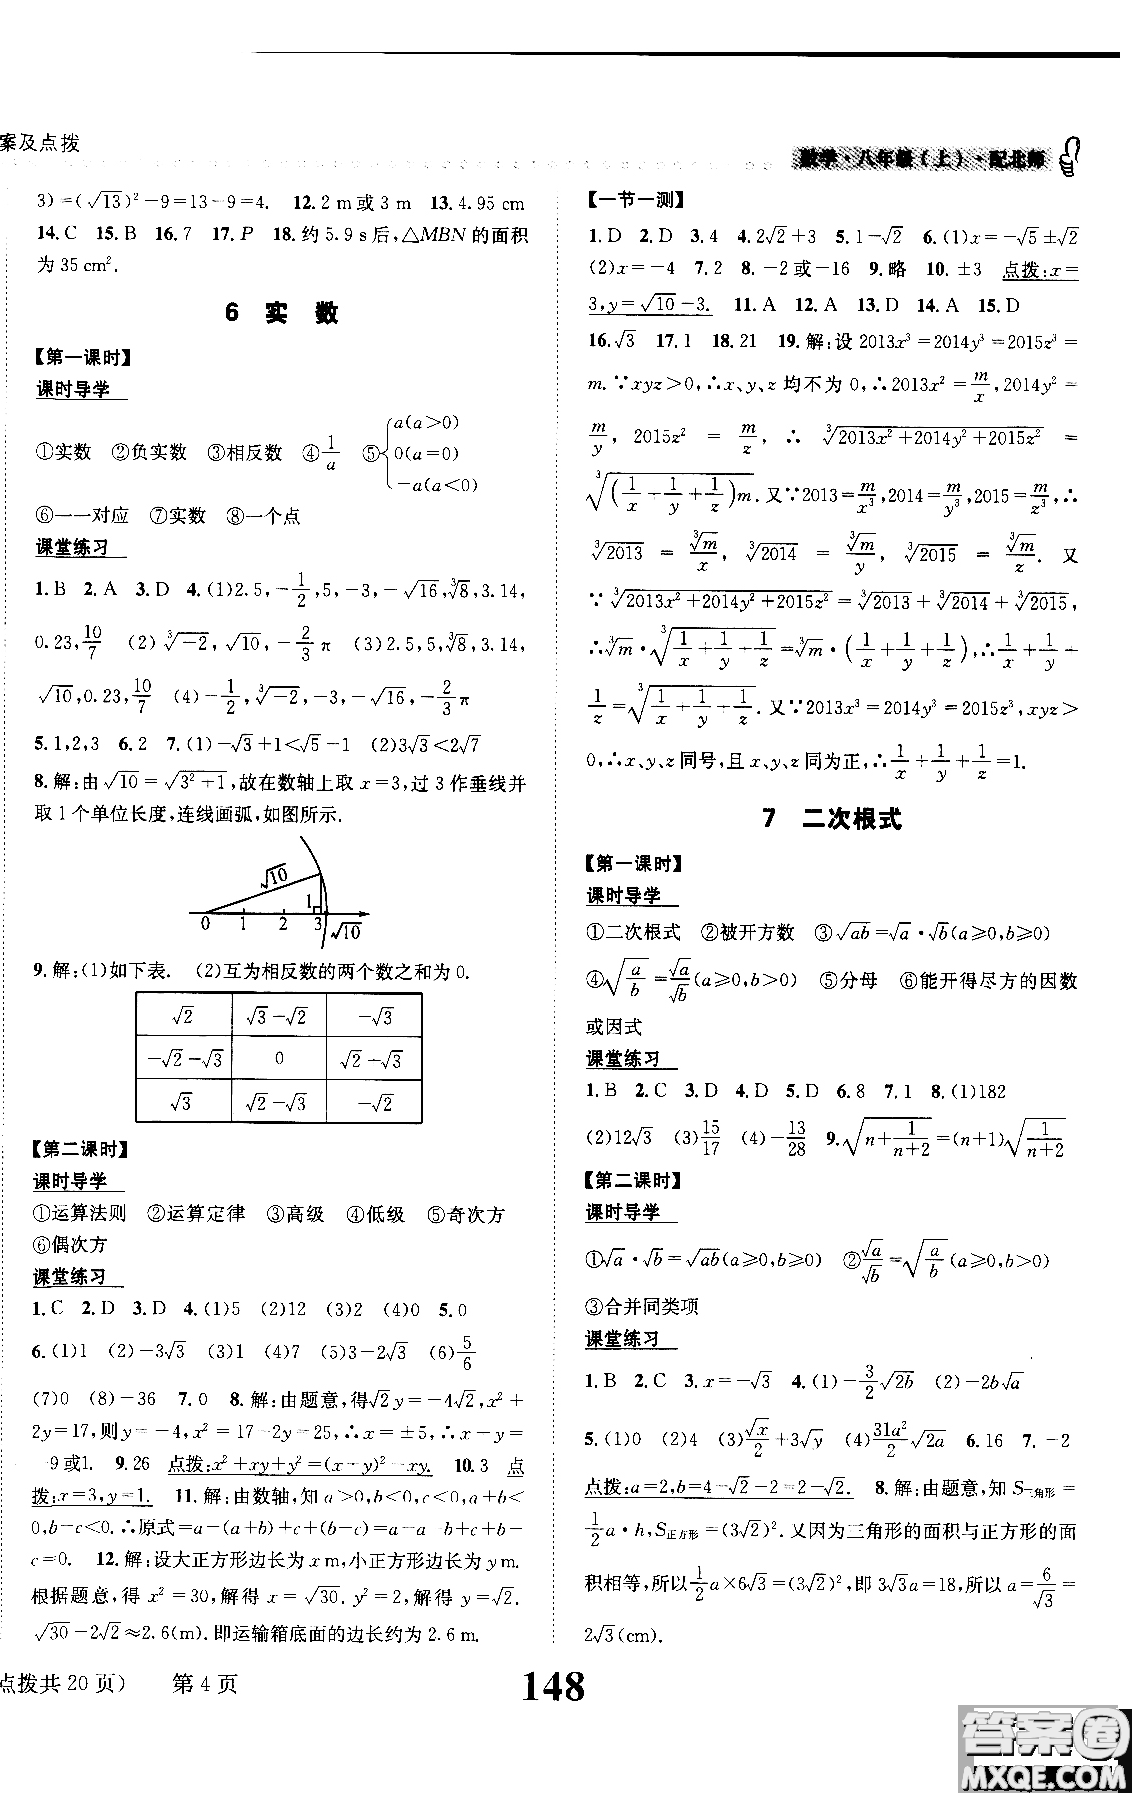 案及点拨
数学·八年级(上)·配北师
3)=(√13)²-9=13-9=4. 12.2 m或3 m 13.4.95 cm
14.C 15.B 16.7 17.P 18.约5.9 s后,△MBN的面积
为35 cm².
6 实 数
【第一课时】
课时导学
①实数 ②负实数 ③相反数 ④1/a ⑤{a(a>0) 0(a=0) -a(a<0)
⑥一一对应 ⑦实数 ⑧一个点
课堂练习
1.B 2.A 3.D 4.(1)2.5,-1/2,5,-3,-√16,∛8,3.14,
0.23,10/7 (2)∛-2,√10,-2/3π (3)2.5,5,∛8,3.14,
√10,0.23,10/7 (4)-1/2,∛-2,-3,-√16,-2/3π
5.1,2,3 6.2 7.(1)-√3+1<√5-1 (2)3√3<2√7
8.解:由√10=√(3²+1),故在数轴上取x=3,过3作垂线并
取1个单位长度,连线画弧,如图所示.
√10
1
0 1 2 3 √10
9.解:(1)如下表. (2)互为相反数的两个数之和为0.
√2 √3-√2 -√3
-√2-√3 0 √2-√3
√3 √2-√3 -√2
【第二课时】
课时导学
①运算法则 ②运算定律 ③高级 ④低级 ⑤奇次方
⑥偶次方
课堂练习
1.C 2.D 3.D 4.(1)5 (2)12 (3)2 (4)0 5.0
6.(1)1 (2)-3√3 (3)1 (4)7 (5)3-2√3 (6)5/6
(7)0 (8)-36 7.0 8.解:由题意,得√2y=-4√2,x²+
2y=17,则y=-4,x²=17-2y=25,∴x=±5,∴x-y=
-9或1. 9.26 点拨:x²+xy+y²=(x-y)²-xy. 10.3 点
拨:x=3,y=1. 11.解:由数轴,知a>0,b<0,c<0,a+b<
0,b-c<0.∴原式=a-(a+b)+c+(b-c)=a-a-b+c+b-
c=0. 12.解:设大正方形边长为x m,小正方形边长为y m.
根据题意,得x²=30,解得x=√30.y²=2,解得y=√2.
√30-2√2≈2.6(m).即运输箱底面的边长约为2.6 m.
【一节一测】
1.D 2.D 3.4 4.2√2+3 5.1-√2 6.(1)x=-√5±√2
(2)x=-4 7.2 8.-2或-16 9.略 10.±3 点拨:x=
3,y=√10-3. 11.A 12.A 13.D 14.A 15.D
16.√3 17.1 18.21 19.解:设2013x³=2014y³=2015z³=
m.∵xyz>0,∴x、y、z均不为0,∴2013x²=m/x,2014y²=
m/y, 2015z² = m/z, ∴ ∛(2013x²+2014y²+2015z²) =
∛((1/x+1/y+1/z)m).又∵2013=m/x³,2014=m/y³,2015=m/z³,∴
∛2013 = ∛m/x, ∛2014 = ∛m/y, ∛2015 = ∛m/z. 又
∵∛(2013x²+2014y²+2015z²)=∛2013+∛2014+∛2015,
∴∛m·∛(1/x+1/y+1/z)=∛m·(1/x+1/y+1/z),∴1/x+1/y+
1/z=∛(1/x+1/y+1/z).又∵2013x³=2014y³=2015z³,xyz>
0,∴x、y、z同号,且x、y、z同为正,∴1/x+1/y+1/z=1.
7 二次根式
【第一课时】
课时导学
①二次根式 ②被开方数 ③√ab=√a·√b(a≥0,b≥0)
④√(a/b)=√a/√b(a≥0,b>0) ⑤分母 ⑥能开得尽方的因数
或因式
课堂练习
1.B 2.C 3.D 4.D 5.D 6.8 7.1 8.(1)182
(2)12√3 (3)15/17 (4)-13/28 9.√(n+1/(n+2))=(n+1)√(1/(n+2))
【第二课时】
课时导学
①√a·√b=√ab(a≥0,b≥0) ②√a/√b=√(a/b)(a≥0,b>0)
③合并同类项
课堂练习
1.B 2.C 3.x=-√3 4.(1)-3/2√2b (2)-2b√a
5.(1)0 (2)4 (3)√x/2+3√y (4)31a²/2√2a 6.16 7.-2
点拨:a=2,b=4-√2-2=2-√2. 8.解:由题意,知S三角形=
1/2a·h,S正方形=(3√2)².又因为三角形的面积与正方形的面
积相等,所以1/2a×6√3=(3√2)²,即3√3a=18,所以a=6/√3=
2√3(cm).
点拨共20页) 第4页
148
答案圈
MXQE.COM